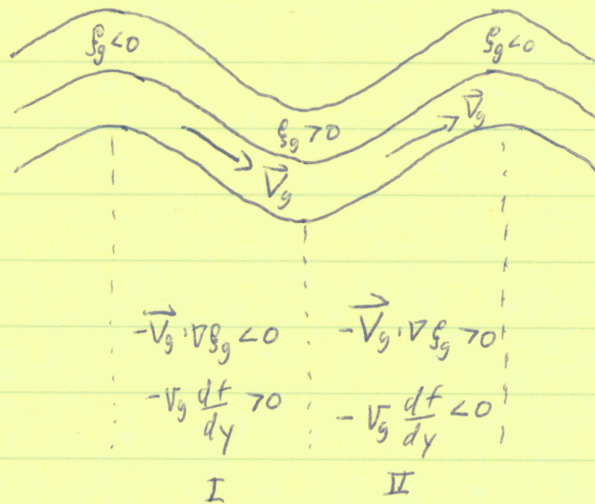 ξg < 0
ξg < 0
V⃗g
ξg > 0
V⃗g
-V⃗g · ∇ξg < 0
-V⃗g · ∇ξg > 0
-Vg df/dy > 0
-Vg df/dy < 0
I
II